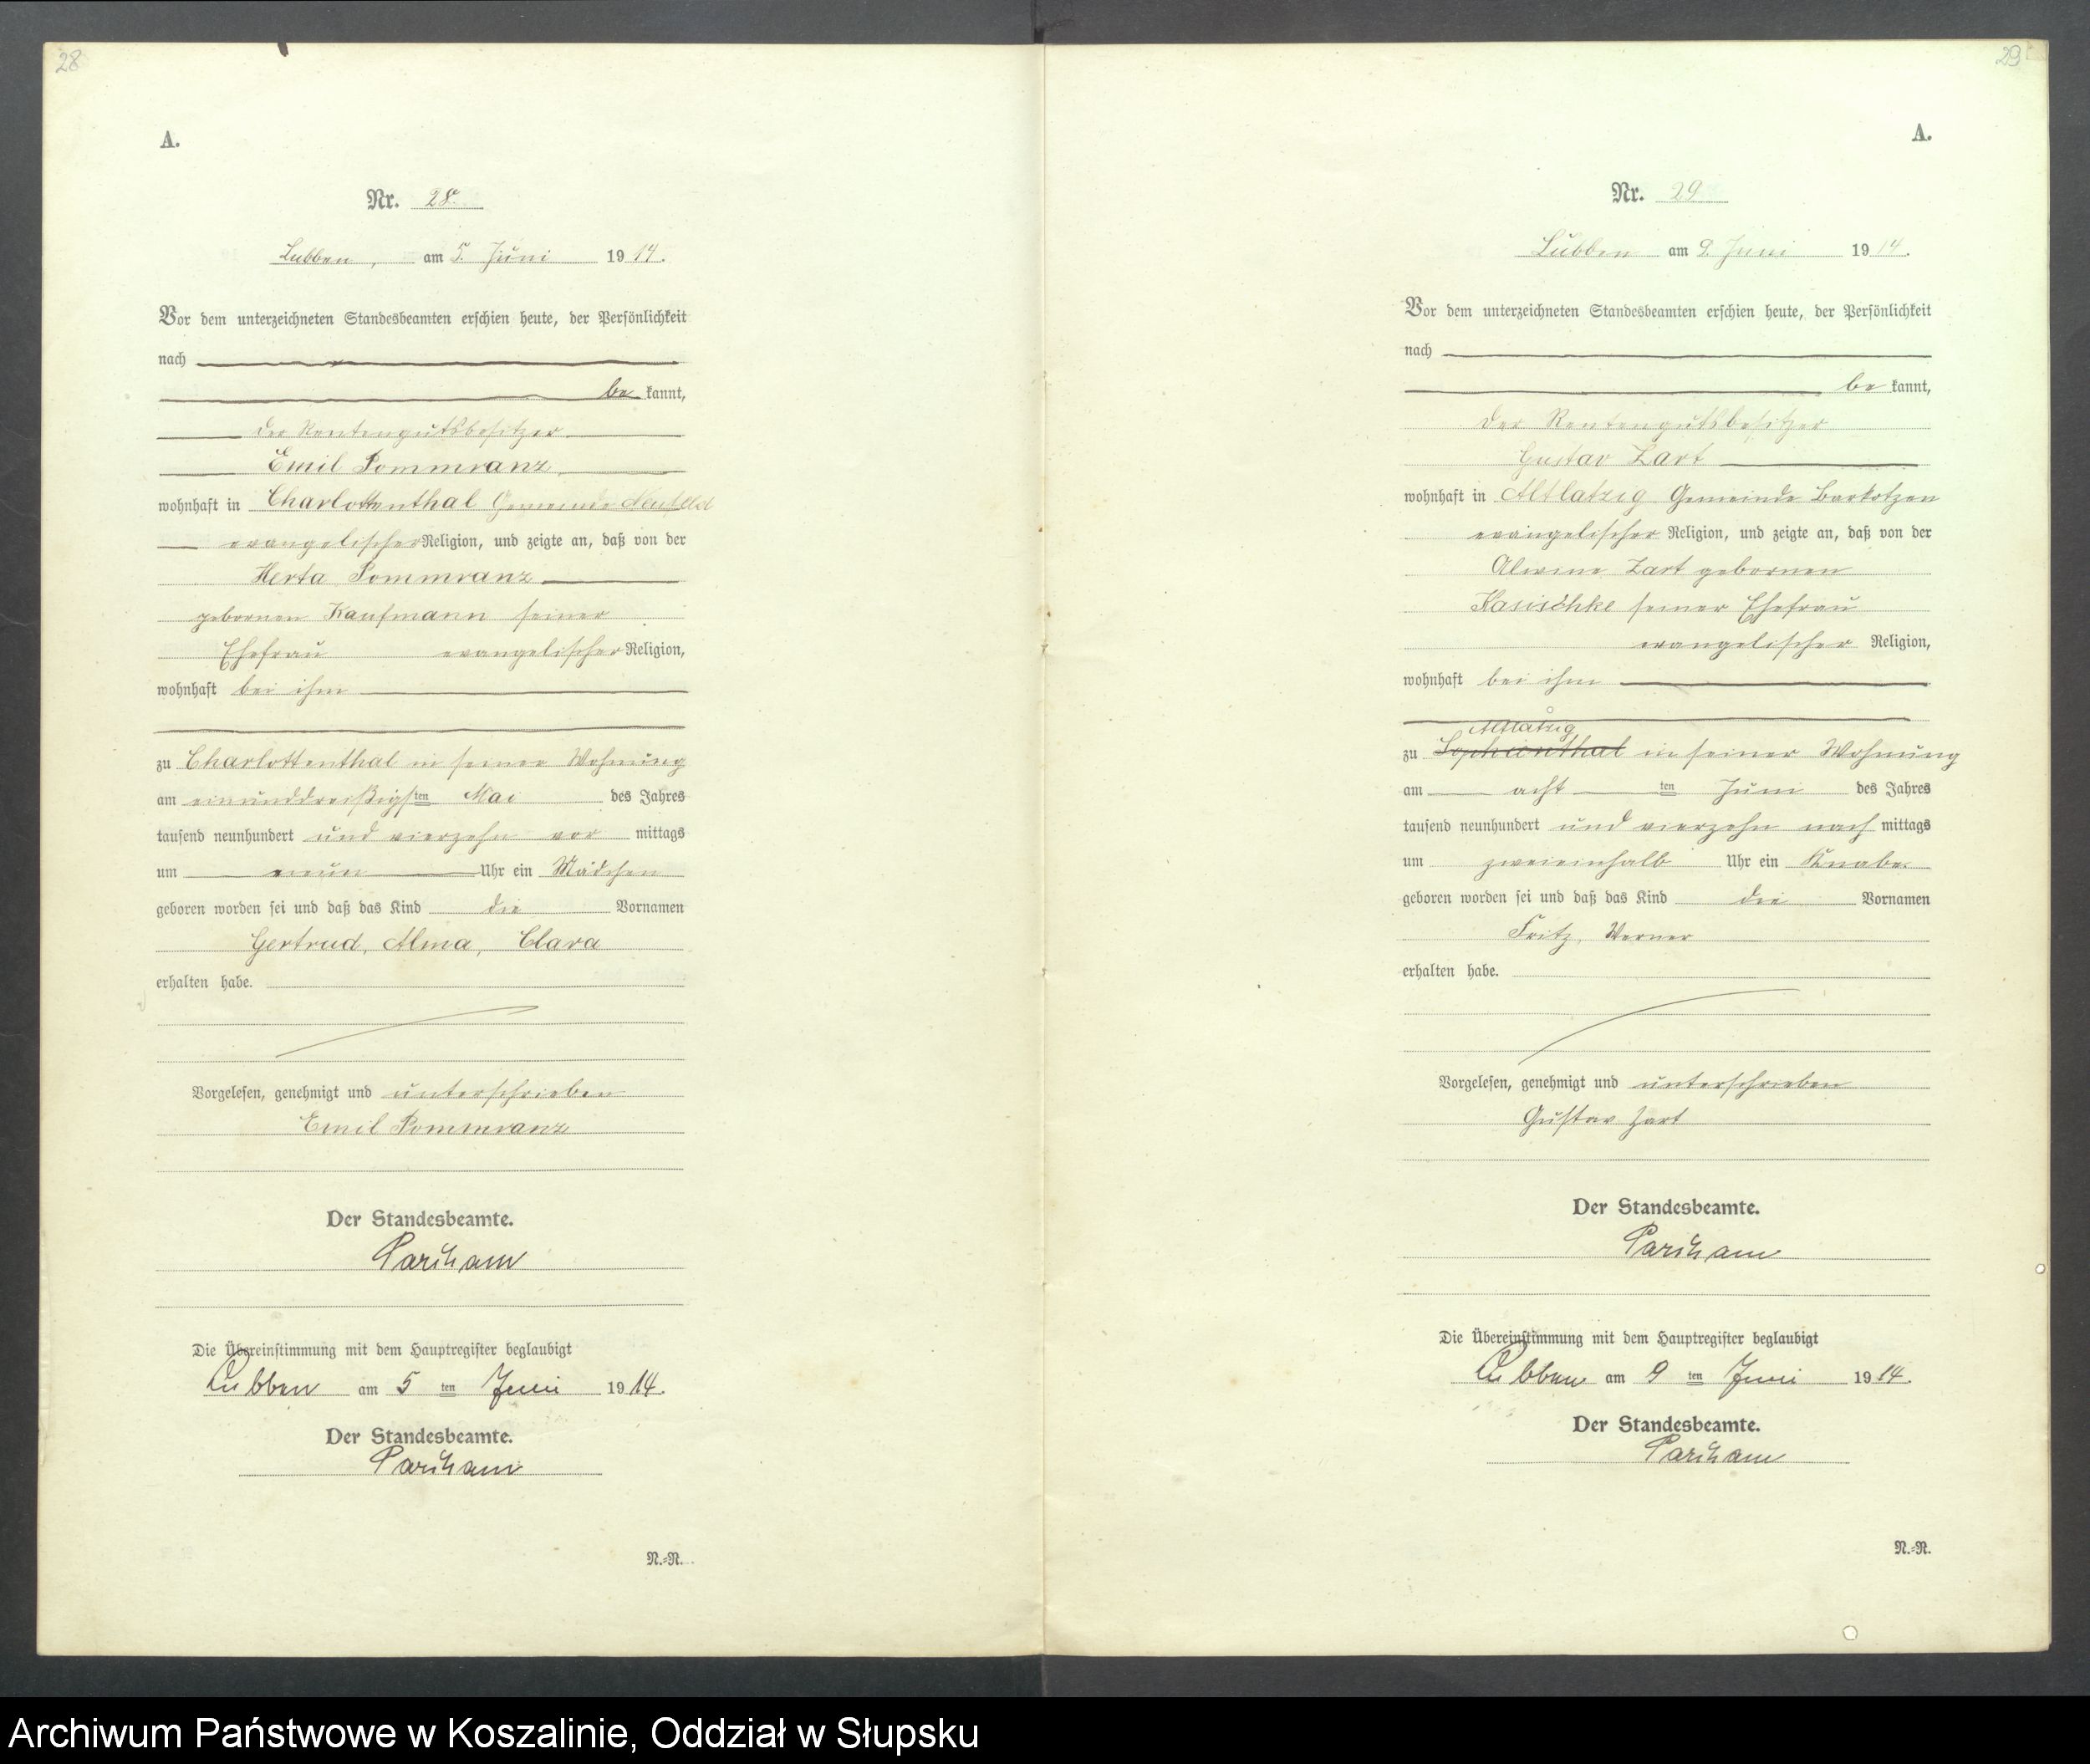 28
A.
Nr. 28.
Lubben, am 5. Juni 1914.
Vor dem unterzeichneten Standesbeamten erschien heute, der Persönlichkeit
nach
be kannt,
der Rentengutsbesitzer
Emil Pommranz
wohnhaft in Charlottenthal Gemeinde Neufeld
evangelischer Religion, und zeigte an, daß von der
Herta Pommranz
gebornen Kaufmann seiner
Ehefrau evangelischer Religion,
wohnhaft bei ihm
zu Charlottenthal in seiner Wohnung
am einunddreißigsten Mai des Jahres
tausend neunhundert und vierzehn vor mittags
um neun Uhr ein Mädchen
geboren worden sei und daß das Kind die Vornamen
Gertrud, Alma, Clara
erhalten habe.
Vorgelesen, genehmigt und unterschrieben
Emil Pommranz
Der Standesbeamte.
Die Übereinstimmung mit dem Hauptregister beglaubigt
Lubben am 5 ten Juni 1914.
Der Standesbeamte.
N.=R.
29
A.
Nr. 29
Lubben am 9. Juni 1914.
Vor dem unterzeichneten Standesbeamten erschien heute, der Persönlichkeit
nach
be kannt,
der Rentengutsbesitzer
Gustav Zart
wohnhaft in Altlatzig Gemeinde Barkotzen
evangelischer Religion, und zeigte an, daß von der
Alwine Zart gebornen
Kasischke seiner Ehefrau
evangelischer Religion,
wohnhaft bei ihm
Altlatzig
zu Sophienthal in seiner Wohnung
am acht ten Juni des Jahres
tausend neunhundert und vierzehn nach mittags
um zweieinhalb Uhr ein Knabe
geboren worden sei und daß das Kind die Vornamen
Fritz, Werner
erhalten habe.
Vorgelesen, genehmigt und unterschrieben
Gustav Zart
Der Standesbeamte.
Die Übereinstimmung mit dem Hauptregister beglaubigt
Lubben am 9 ten Juni 1914.
Der Standesbeamte.
N.=R.
Archiwum Państwowe w Koszalinie, Oddział w Słupsku